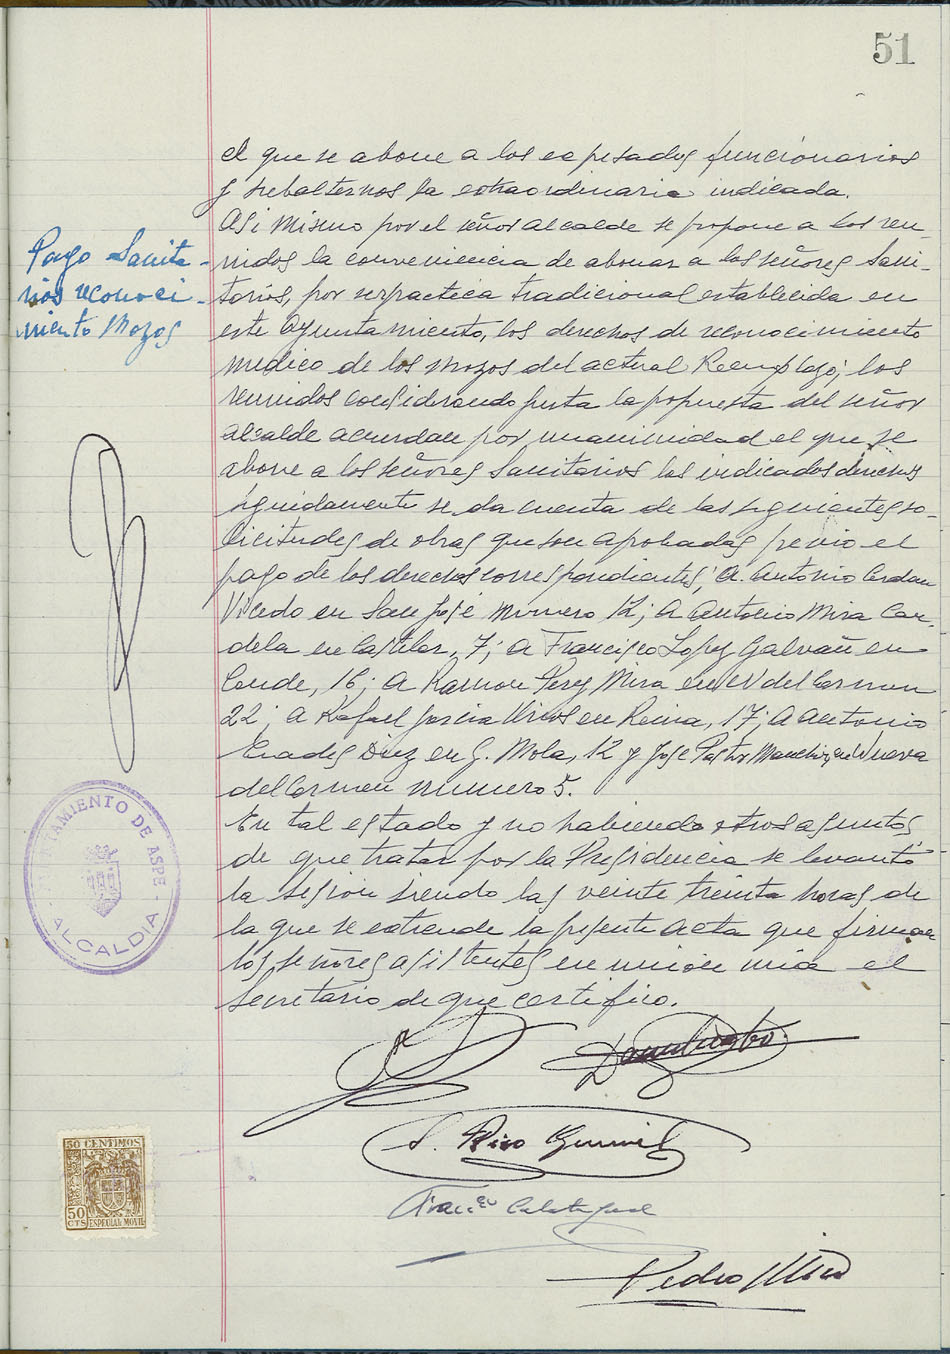 51
el que se abone a los expesados funcionarios
y subalternos la extraordinaria indicada.
Asi mismo por el señor alcalde se propone a los reu-
nidos la conveniencia de abonar a los señores Sani-
tarios, por ser practica tradicional establecida en
este Ayuntamiento, los derechos de reconocimiento
medico de los Mozos del actual Reemplazo; los
reunidos considerando justa la propuesta del señor
alcalde acuerdan por unanimidad el que se
abone a los señores Sanitarios los indicados derechos
Seguidamente se da cuenta de las siguientes so-
licitudes de obras que son aprobadas previo el
pago de los derechos correspondientes; A. Antonio Cerdan
Vicedo en San José numero 12; A Antonio Mira Can-
dela en Castelar, 7; A Francisco Lopez Galvañ en
Conde, 16; A Ramon Perez Mira en N del Carmen
22; A Rafael Garcia en Reina, 17; A Antonio
Diez en G. Mola, 12 y Jose Pastor en Nueva
del Carmen numero 5.
En tal estado y no habiendo otros asuntos
de que tratar por la Presidencia se levantó
la sesion siendo las veinte treinta horas de
la que se extiende la presente acta que firman
los señores asistentes en union mia el
Secretario de que certifico.
Pago Sanita-
rios reconoci-
miento Mozos
AYUNTAMIENTO DE ASPE
ALCALDIA
50 CENTIMOS
50 CTS ESPECIAL MOVIL
Pedro Mira